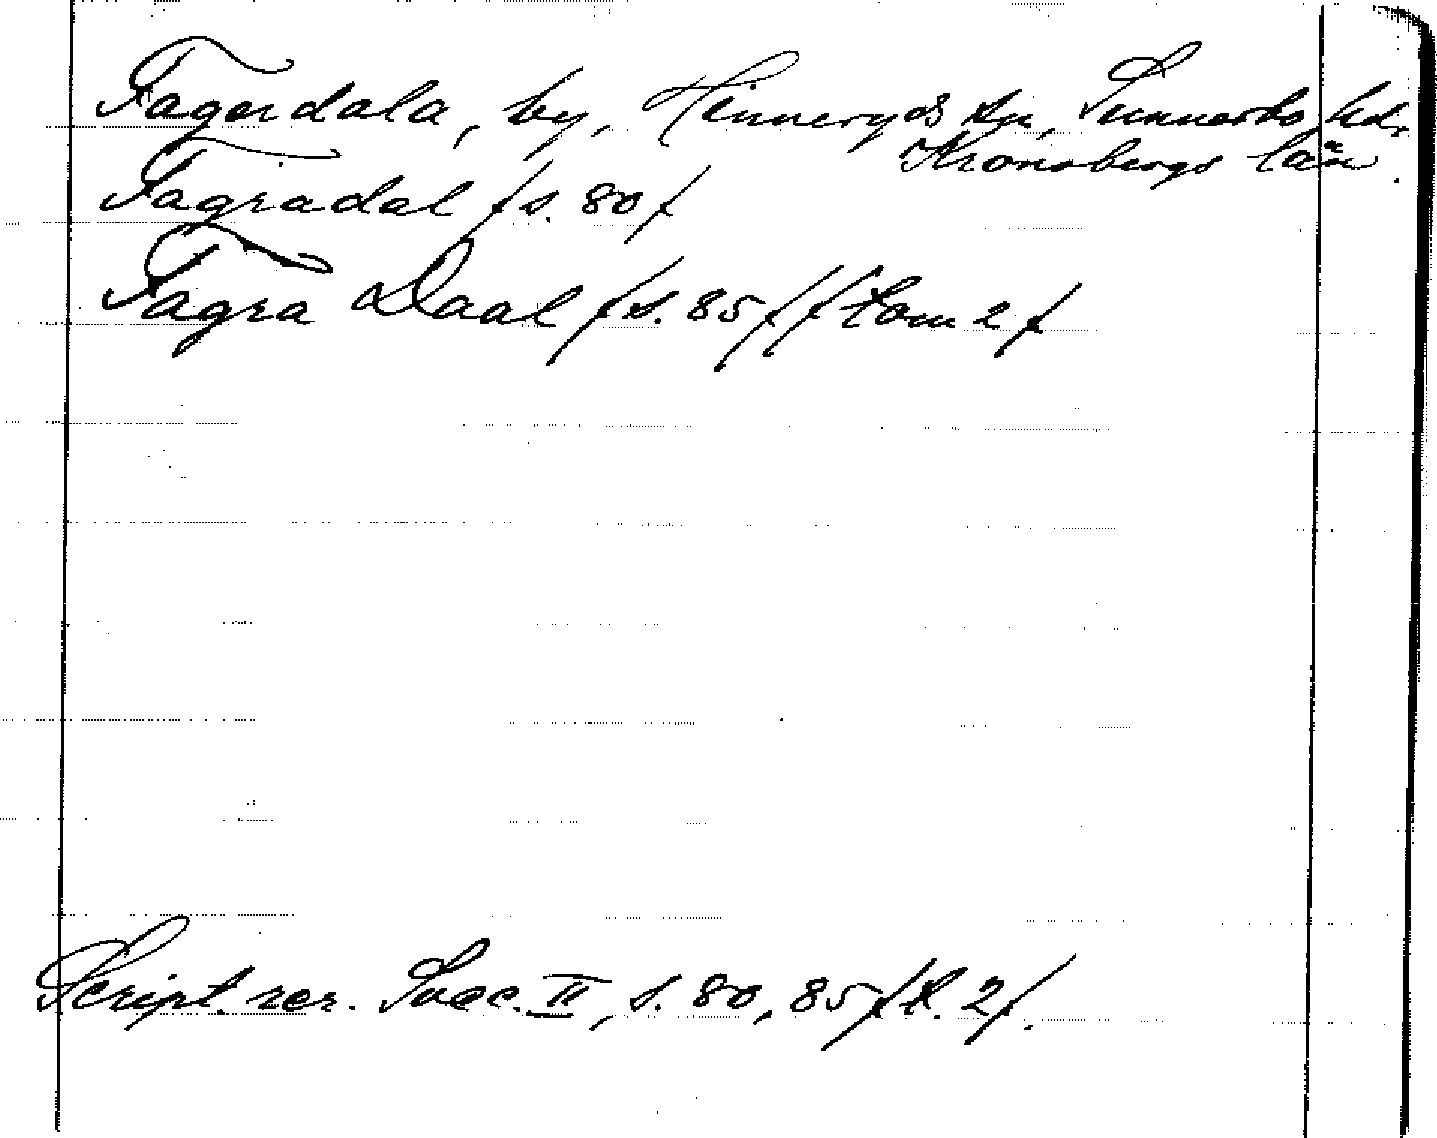 Fagerdala, by, Hinneryds sn, Sunnerbo hd,
Kronobergs län.
Fagradal /s. 80/
Fagra Daal /s. 85/ /tom 2/
Script. rer. Svec. II, s. 80, 85/t. 2/.